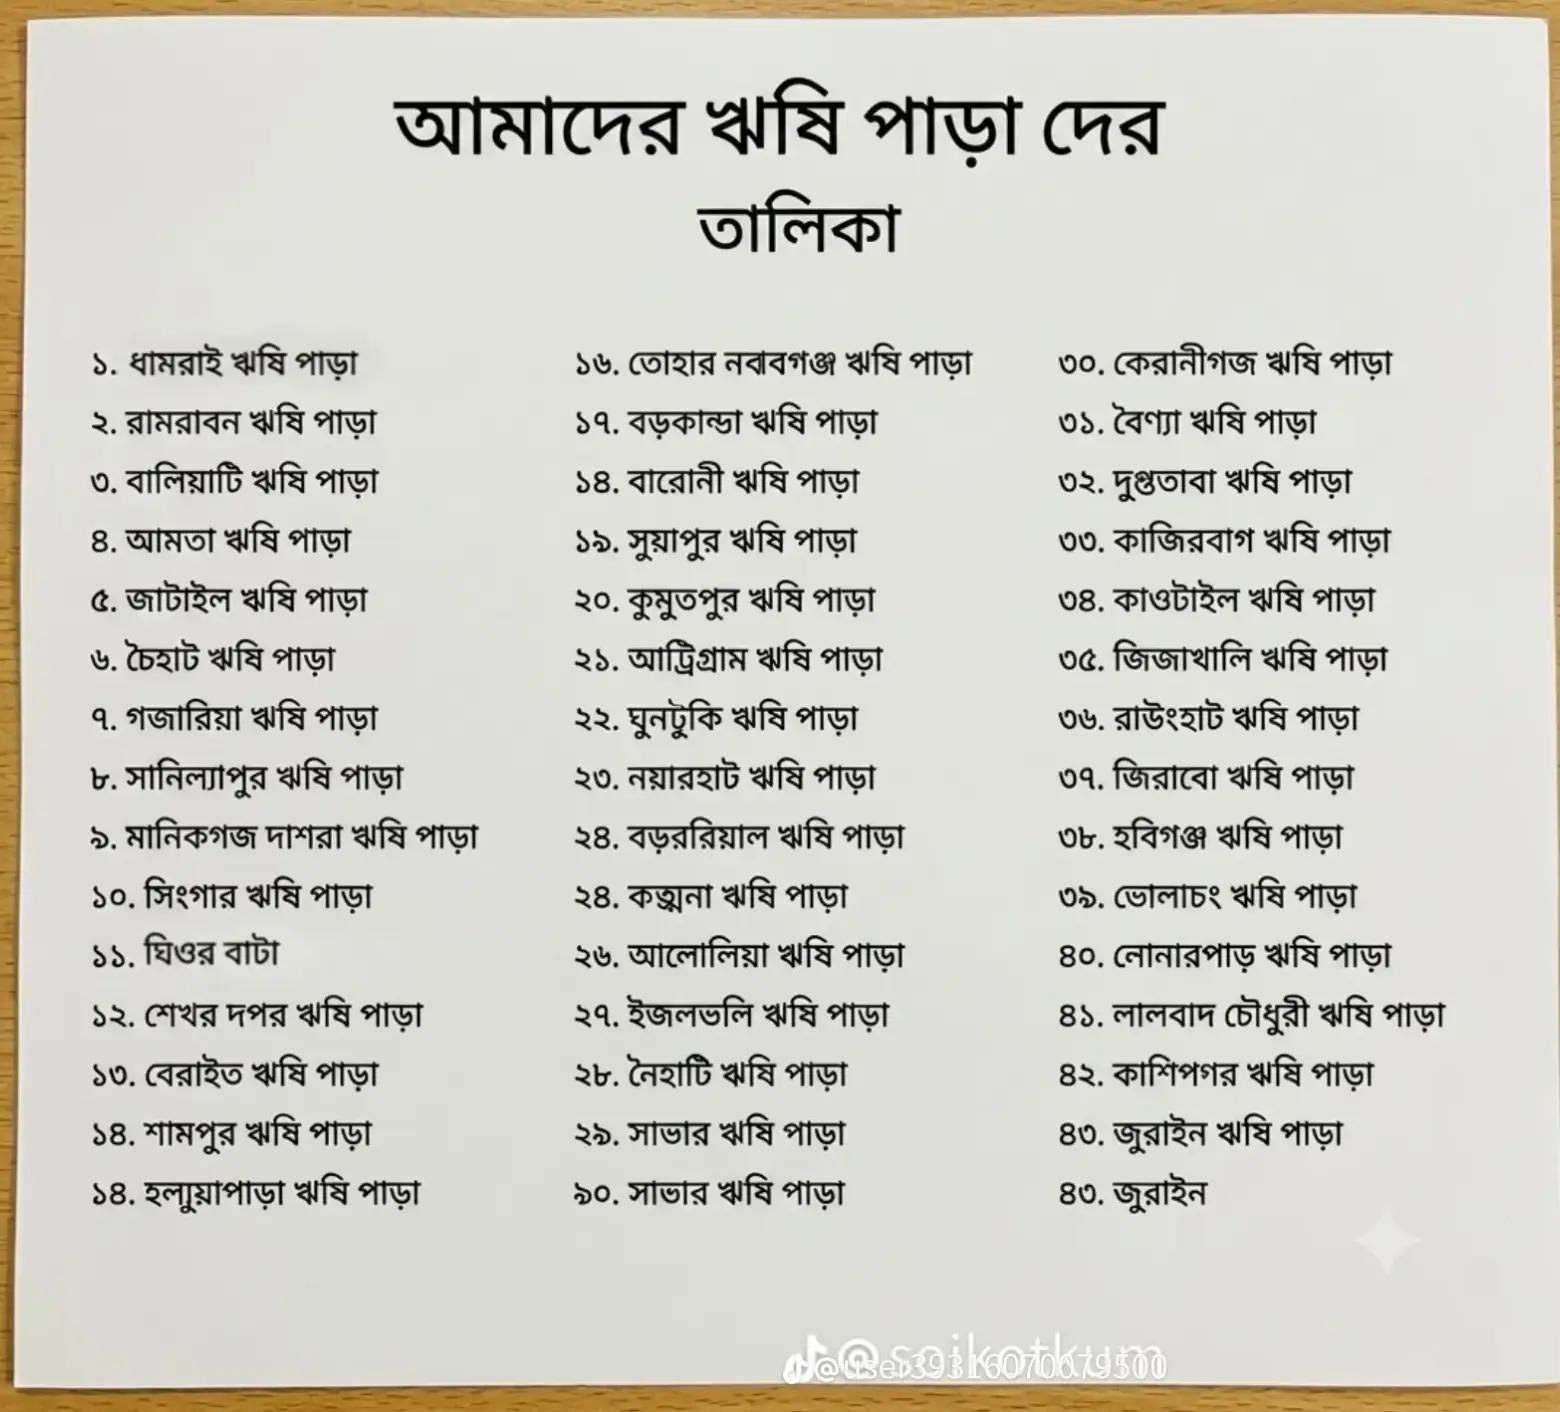 আমাদের ঋষি পাড়া দের
তালিকা
১. ধামরাই ঋষি পাড়া
২. রামরাবন ঋষি পাড়া
৩. বালিয়াটি ঋষি পাড়া
৪. আমতা ঋষি পাড়া
৫. জাটাইল ঋষি পাড়া
৬. চৈহাট ঋষি পাড়া
৭. গজারিয়া ঋষি পাড়া
৮. সানিল্যাপুর ঋষি পাড়া
৯. মানিকগজ দাশরা ঋষি পাড়া
১০. সিংগার ঋষি পাড়া
১১. ঘিওর বাটা
১২. শেখর দপর ঋষি পাড়া
১৩. বেরাইত ঋষি পাড়া
১৪. শামপুর ঋষি পাড়া
১৪. হল্যুয়াপাড়া ঋষি পাড়া
১৬. তোহার নবাবগঞ্জ ঋষি পাড়া
১৭. বড়কান্ডা ঋষি পাড়া
১৪. বারোনী ঋষি পাড়া
১৯. সুয়াপুর ঋষি পাড়া
২০. কুমুতপুর ঋষি পাড়া
২১. আট্রিগ্রাম ঋষি পাড়া
২২. ঘুনটুকি ঋষি পাড়া
২৩. নয়ারহাট ঋষি পাড়া
২৪. বড়ররিয়াল ঋষি পাড়া
২৪. ঋষি পাড়া
২৬. আলোলিয়া ঋষি পাড়া
২৭. ইজলভলি ঋষি পাড়া
২৮. নৈহাটি ঋষি পাড়া
২৯. সাভার ঋষি পাড়া
৯০. সাভার ঋষি পাড়া
৩০. কেরানীগজ ঋষি পাড়া
৩১. বৈণ্যা ঋষি পাড়া
৩২. দুপ্ততাবা ঋষি পাড়া
৩৩. কাজিরবাগ ঋষি পাড়া
৩৪. কাওটাইল ঋষি পাড়া
৩৫. জিজাখালি ঋষি পাড়া
৩৬. রাউংহাট ঋষি পাড়া
৩৭. জিরাবো ঋষি পাড়া
৩৮. হবিগঞ্জ ঋষি পাড়া
৩৯. ভোলাচং ঋষি পাড়া
৪০. নোনারপাড় ঋষি পাড়া
৪১. লালবাদ চৌধুরী ঋষি পাড়া
৪২. কাশিপগর ঋষি পাড়া
৪৩. জুরাইন ঋষি পাড়া
৪৩. জুরাইন
@user39316070079500